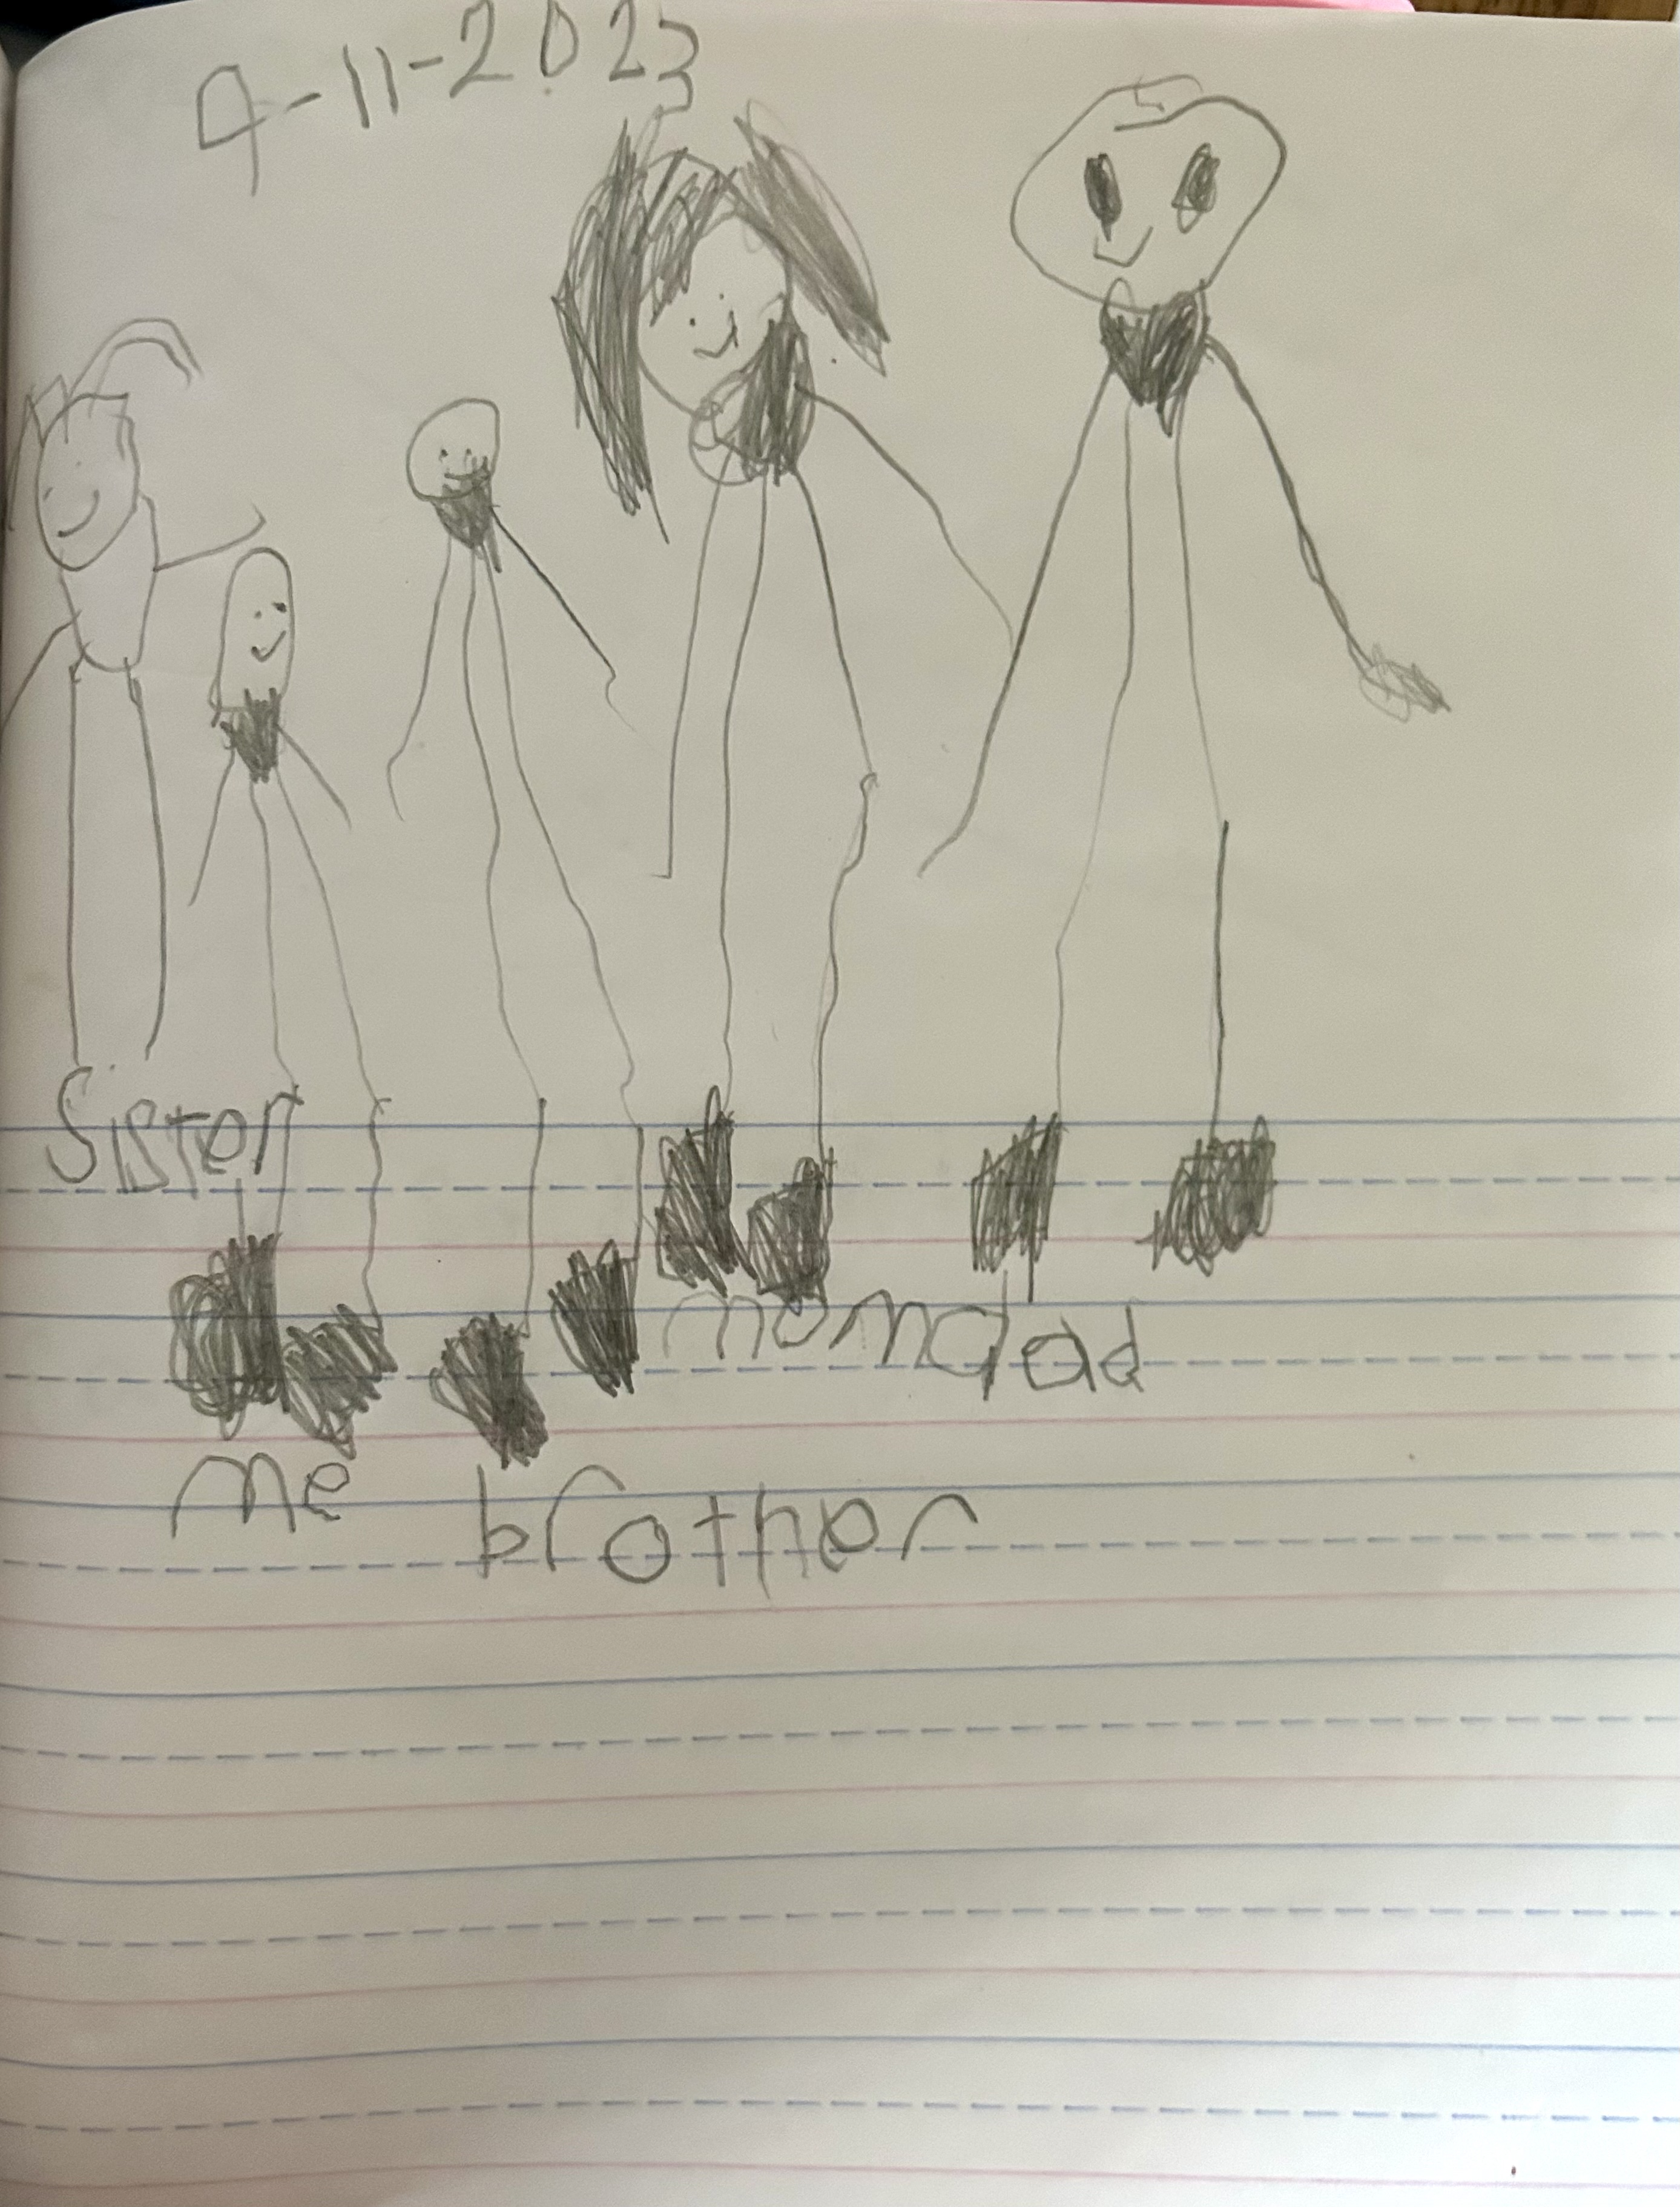 4-11-2023
Sister
mom dad
me brother